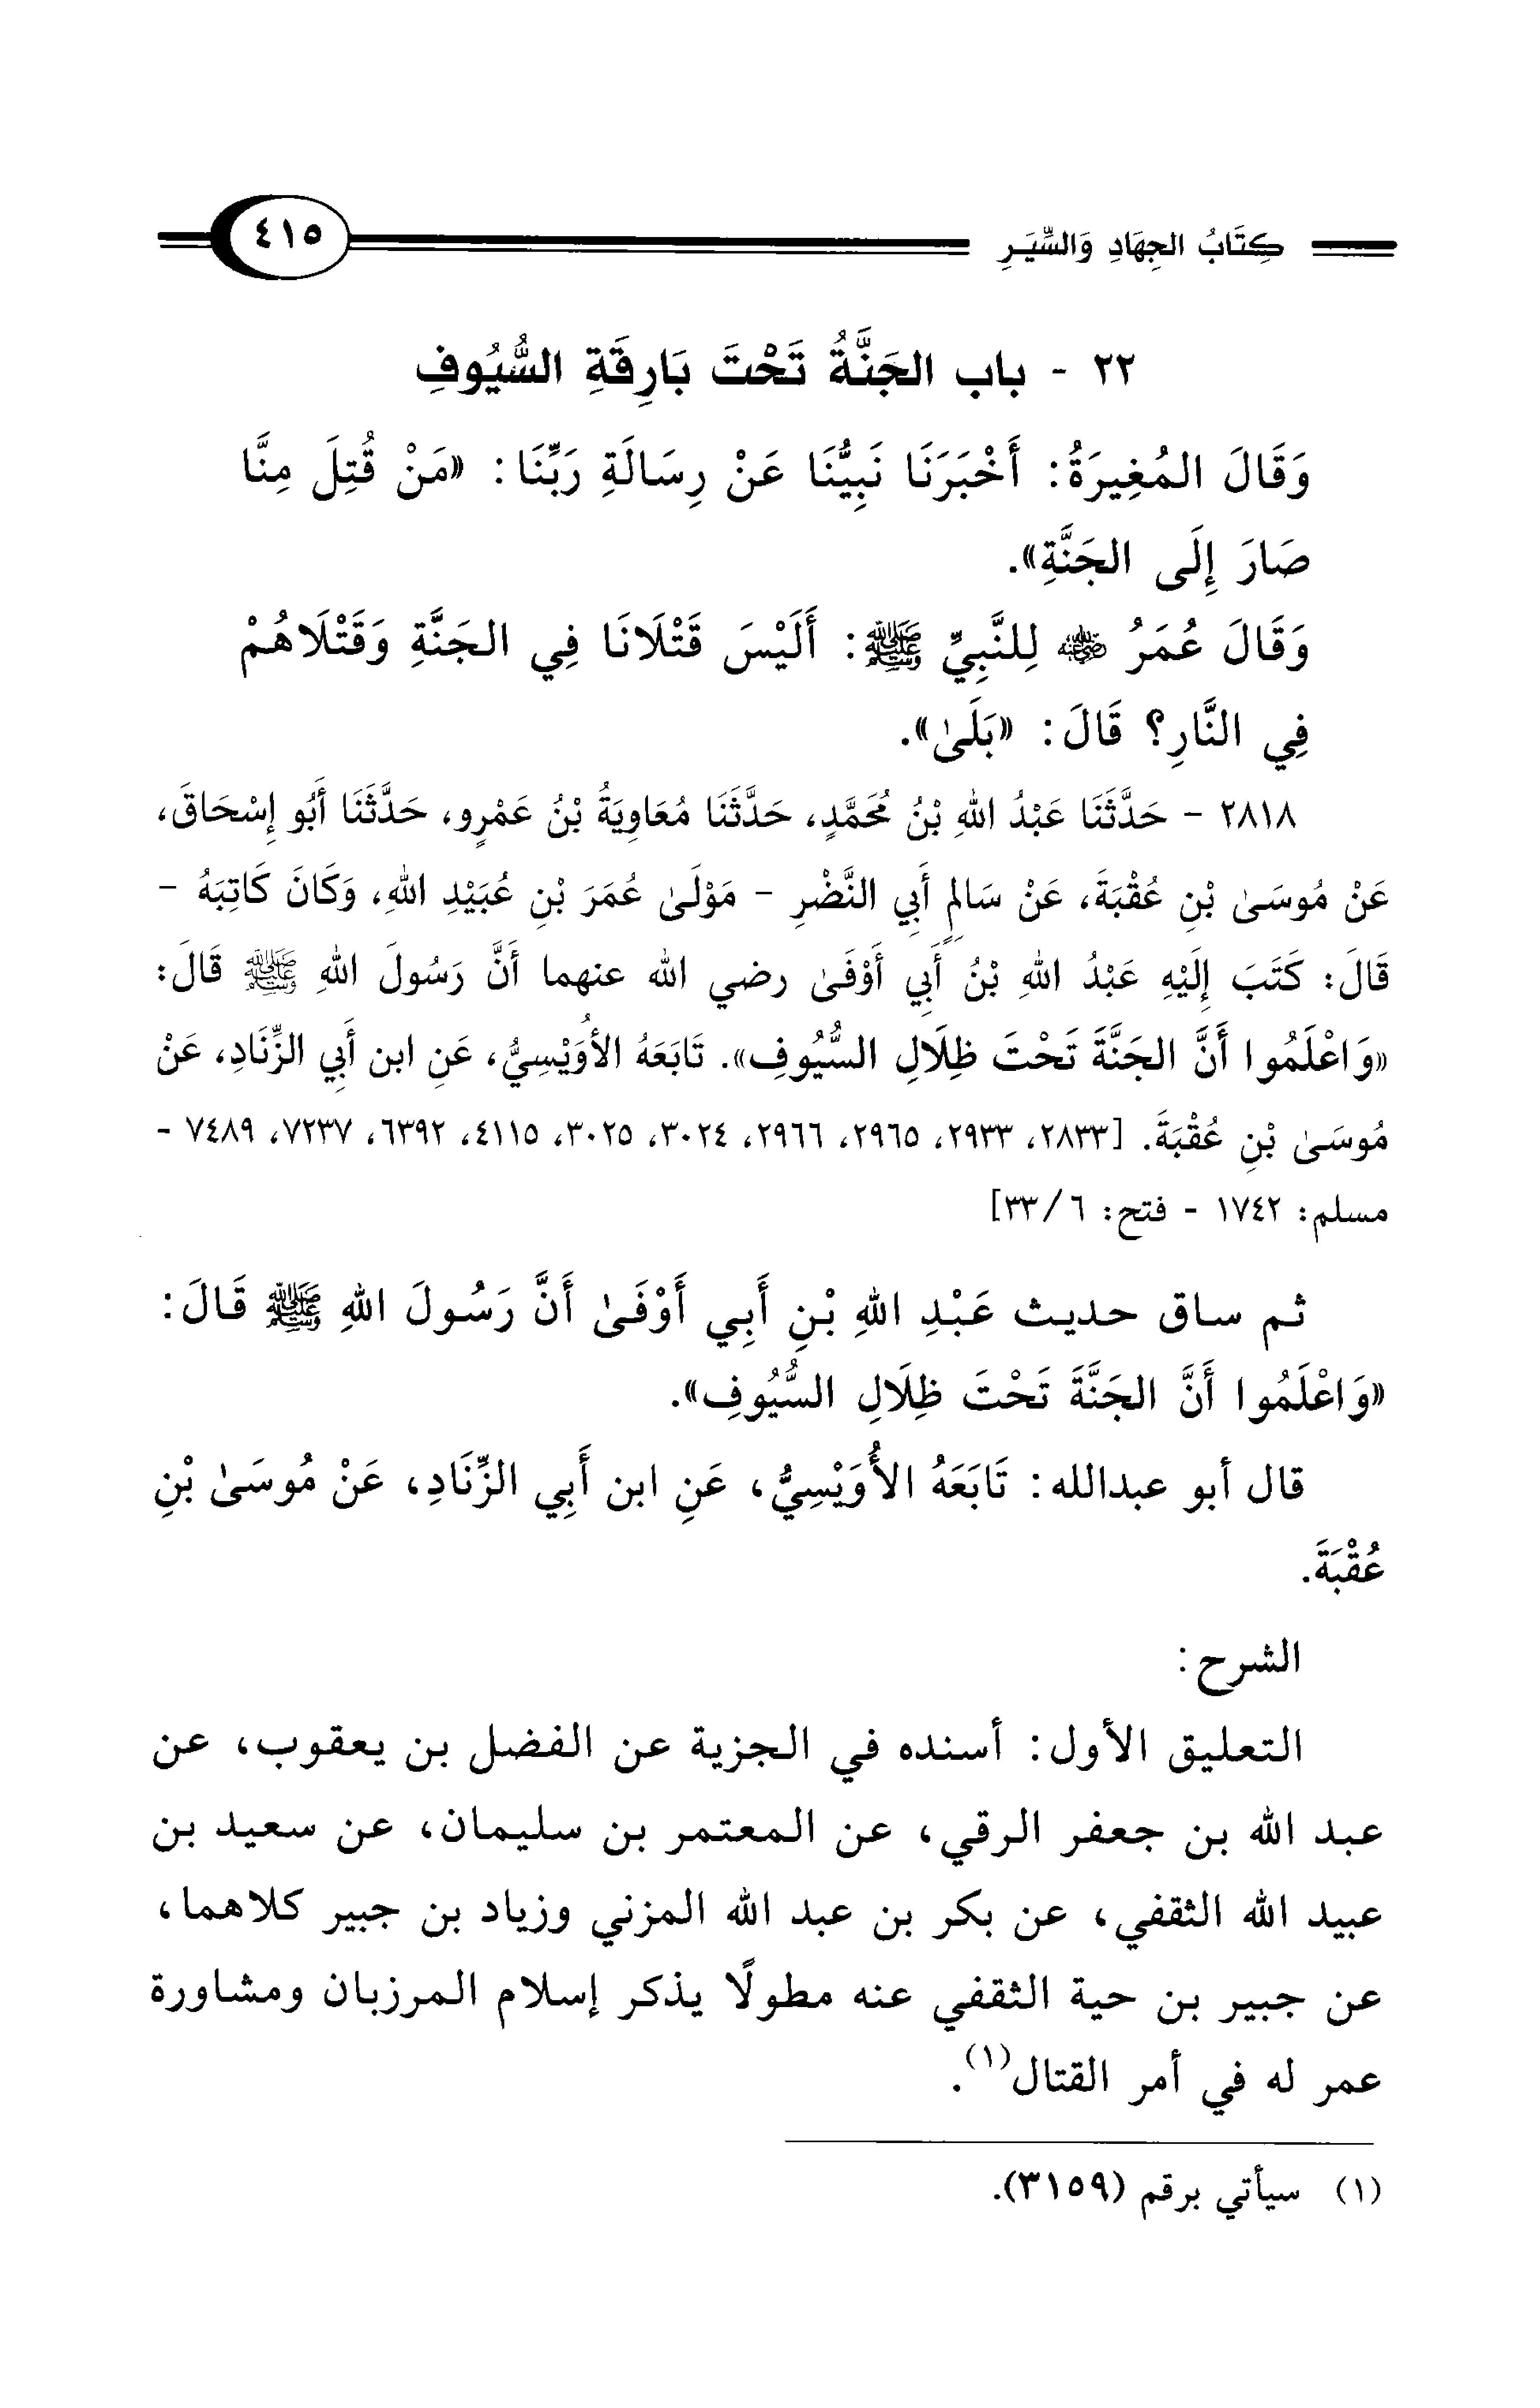 كِتَابُ الجِهَادِ وَالسِّيَرِ ٤١٥
٢٢ - باب الجَنَّةُ تَحْتَ بَارِقَةِ السُّيُوفِ
وَقَالَ المُغِيرَةُ: أَخْبَرَنَا نَبِيُّنَا عَنْ رِسَالَةِ رَبِّنَا: «مَنْ قُتِلَ مِنَّا
صَارَ إِلَى الجَنَّةِ».
وَقَالَ عُمَرُ رضي الله عنه لِلنَّبِيِّ ﷺ: أَلَيْسَ قَتْلَانَا فِي الجَنَّةِ وَقَتْلَاهُمْ
فِي النَّارِ؟ قَالَ: «بَلَىٰ».
٢٨١٨ - حَدَّثَنَا عَبْدُ اللهِ بْنُ مُحَمَّدٍ، حَدَّثَنَا مُعَاوِيَةُ بْنُ عَمْرٍو، حَدَّثَنَا أَبُو إِسْحَاقَ،
عَنْ مُوسَىٰ بْنِ عُقْبَةَ، عَنْ سَالِمٍ أَبِي النَّضْرِ - مَوْلَىٰ عُمَرَ بْنِ عُبَيْدِ اللهِ، وَكَانَ كَاتِبَهُ -
قَالَ: كَتَبَ إِلَيْهِ عَبْدُ اللهِ بْنُ أَبِي أَوْفَىٰ رضي الله عنهما أَنَّ رَسُولَ اللهِ ﷺ قَالَ:
«وَاعْلَمُوا أَنَّ الجَنَّةَ تَحْتَ ظِلَالِ السُّيُوفِ». تَابَعَهُ الأُوَيْسِيُّ، عَنِ ابن أَبِي الزِّنَادِ، عَنْ
مُوسَىٰ بْنِ عُقْبَةَ. [٢٨٣٣، ٢٩٣٣، ٢٩٦٥، ٢٩٦٦، ٣٠٢٤، ٣٠٢٥، ٤١١٥، ٦٣٩٢، ٧٢٣٧، ٧٤٨٩ -
مسلم: ١٧٤٢ - فتح: ٦/ ٣٣]
ثم ساق حديث عَبْدِ اللهِ بْنِ أَبِي أَوْفَىٰ أَنَّ رَسُولَ اللهِ ﷺ قَالَ:
«وَاعْلَمُوا أَنَّ الجَنَّةَ تَحْتَ ظِلَالِ السُّيُوفِ».
قال أبو عبدالله: تَابَعَهُ الأُوَيْسِيُّ، عَنِ ابن أَبِي الزِّنَادِ، عَنْ مُوسَىٰ بْنِ
عُقْبَةَ.
الشرح:
التعليق الأول: أسنده في الجزية عن الفضل بن يعقوب، عن
عبد الله بن جعفر الرقي، عن المعتمر بن سليمان، عن سعيد بن
عبيد الله الثقفي، عن بكر بن عبد الله المزني وزياد بن جبير كلاهما،
عن جبير بن حية الثقفي عنه مطولًا يذكر إسلام المرزبان ومشاورة
عمر له في أمر القتال(١).
(١) سيأتي برقم (٣١٥٩).